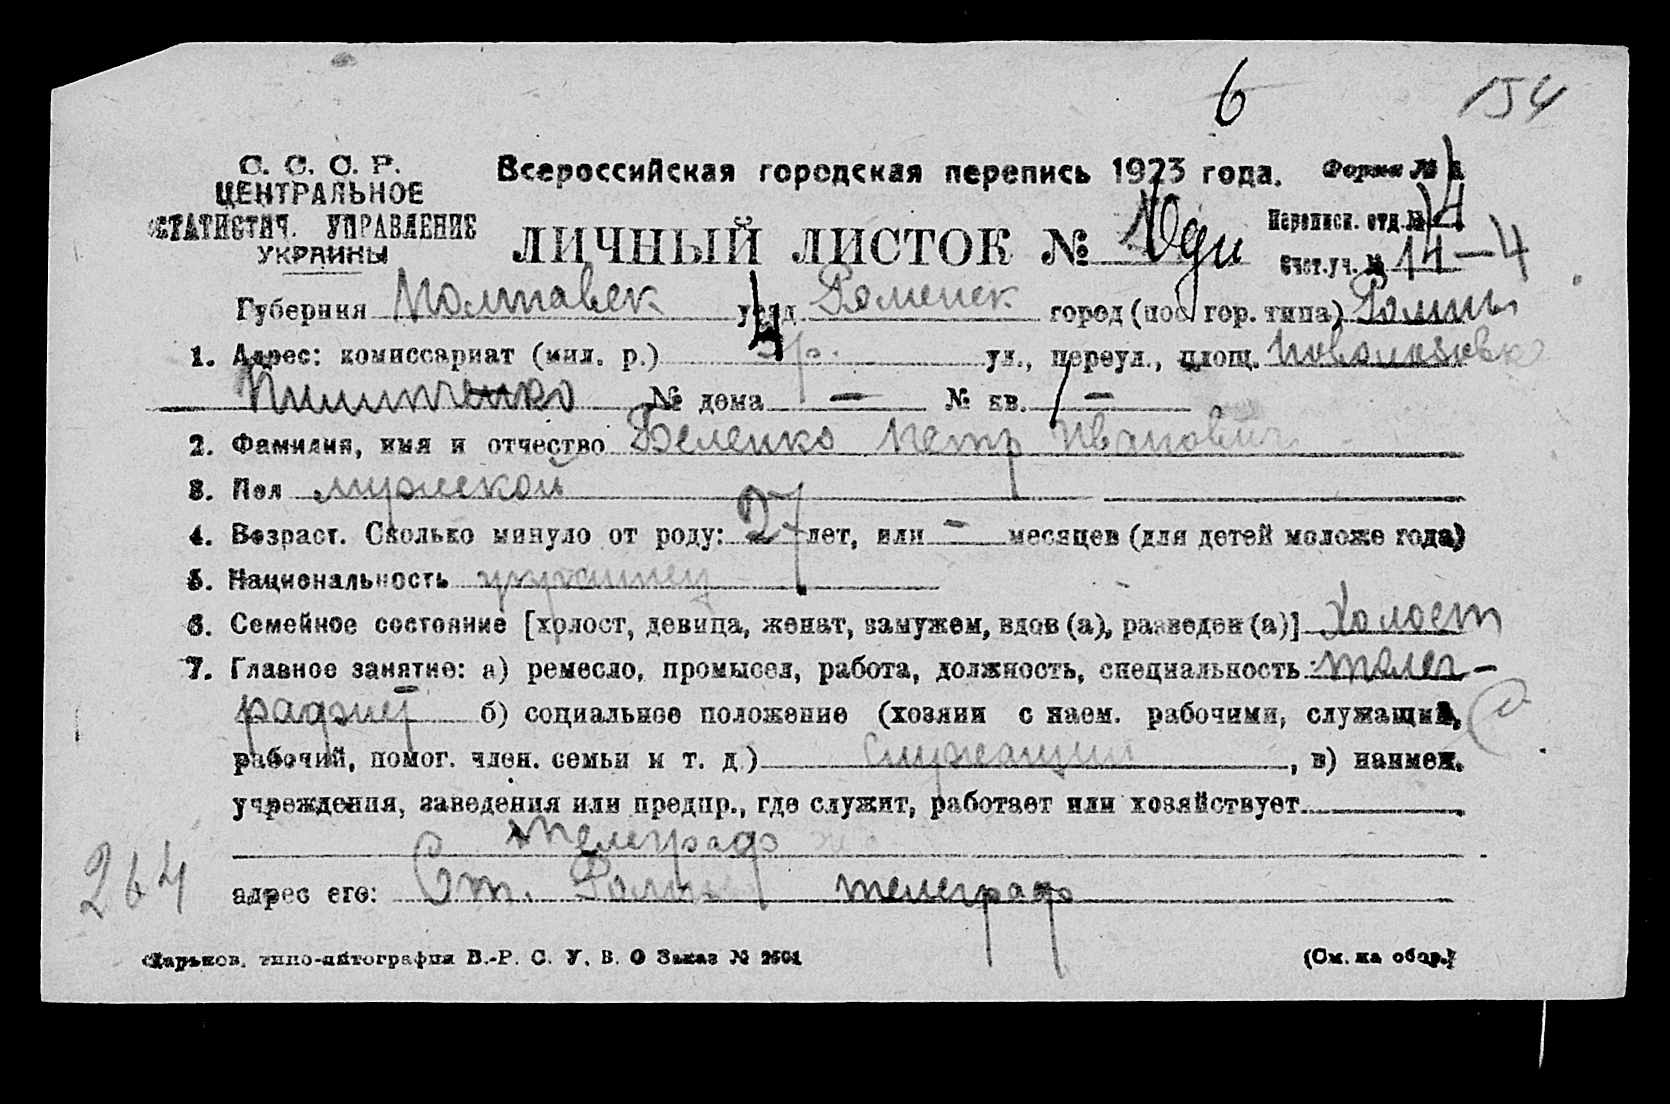 6 154
С. С. С. Р. Всероссийская городская перепись 1923 года. Форма №
ЦЕНТРАЛЬНОЕ
СТАТИСТИЧ. УПРАВЛЕНИЕ Переписн. отд. № 14
УКРАИНЫ ЛИЧНЫЙ ЛИСТОК № Счет.уч. № 14-4
Губерния Полтавск уезд Роменск город (пос гор. типа) Ромны
1. Адрес: комиссариат (мил. р.) ул., переул., площ.
№ дома — № кв. —
2. Фамилия, имя и отчество Беленко Петр Иванович
3. Пол мужской
4. Возраст. Сколько минуло от роду: 27 лет, или — месяцев (для детей моложе года)
5. Национальность украинец
6. Семейное состояние [холост, девица, женат, замужем, вдов (а), разведен (а)] Холост
7. Главное занятие: а) ремесло, промысел, работа, должность, специальность: телег-
рафист б) социальное положение (хозяин с наем. рабочими, служащий,
рабочий, помог. член. семьи и т. д) Служащий, в) наимен.
учреждения, заведения или предпр., где служит, работает или хозяйствует
Телеграф
264 адрес его: Ст. Ромны телеграф
Харьков, типо-литография В.-Р. С. У. В. О Заказ № 2601 (См. на обор.)